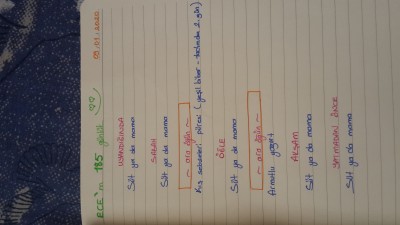 09.01.2020
ECE'm 185 günlük
UYANDIĞINDA
Süt ya da mama
SABAH
Süt ya da mama
~ ara öğün ~
Kış sebzeleri püresi (yeşil biber - tadımdan 2. gün)
ÖĞLE
Süt ya da mama
~ ara öğün ~
Armutlu yoğurt
AKŞAM
Süt ya da mama
YATMADAN ÖNCE
Süt ya da mama